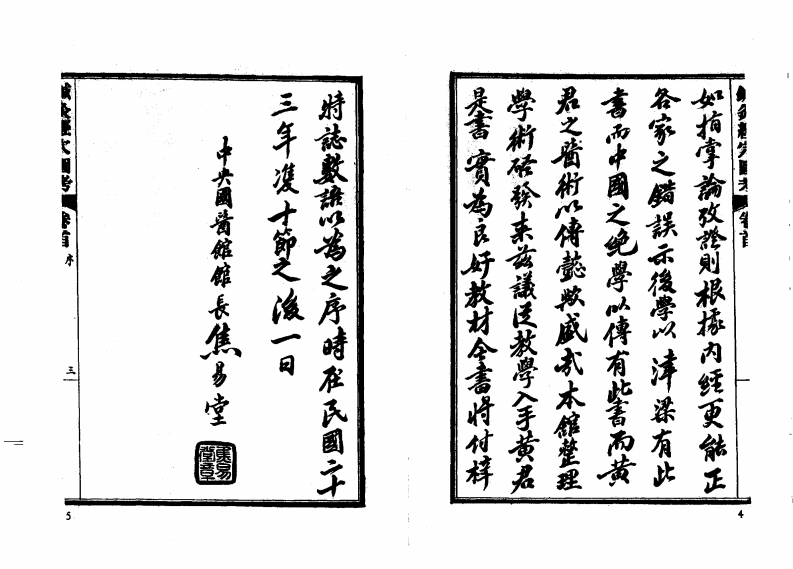 鍼灸經穴圖考 卷首
如指掌論攷證則根據內經更能正
各家之錯誤示後學以津梁有此
書而中國之絕學以傳有此書而黃
君之醫術以傳懿歟盛哉本館整理
學術啓發未茲議從教學入手黃君
是書實為良好教材今書將付梓
4
特誌數語以為之序時在民國二十
三年雙十節之後一日
中央國醫館館長焦易堂
焦易堂章
鍼灸經穴圖考 卷首 序 三
5